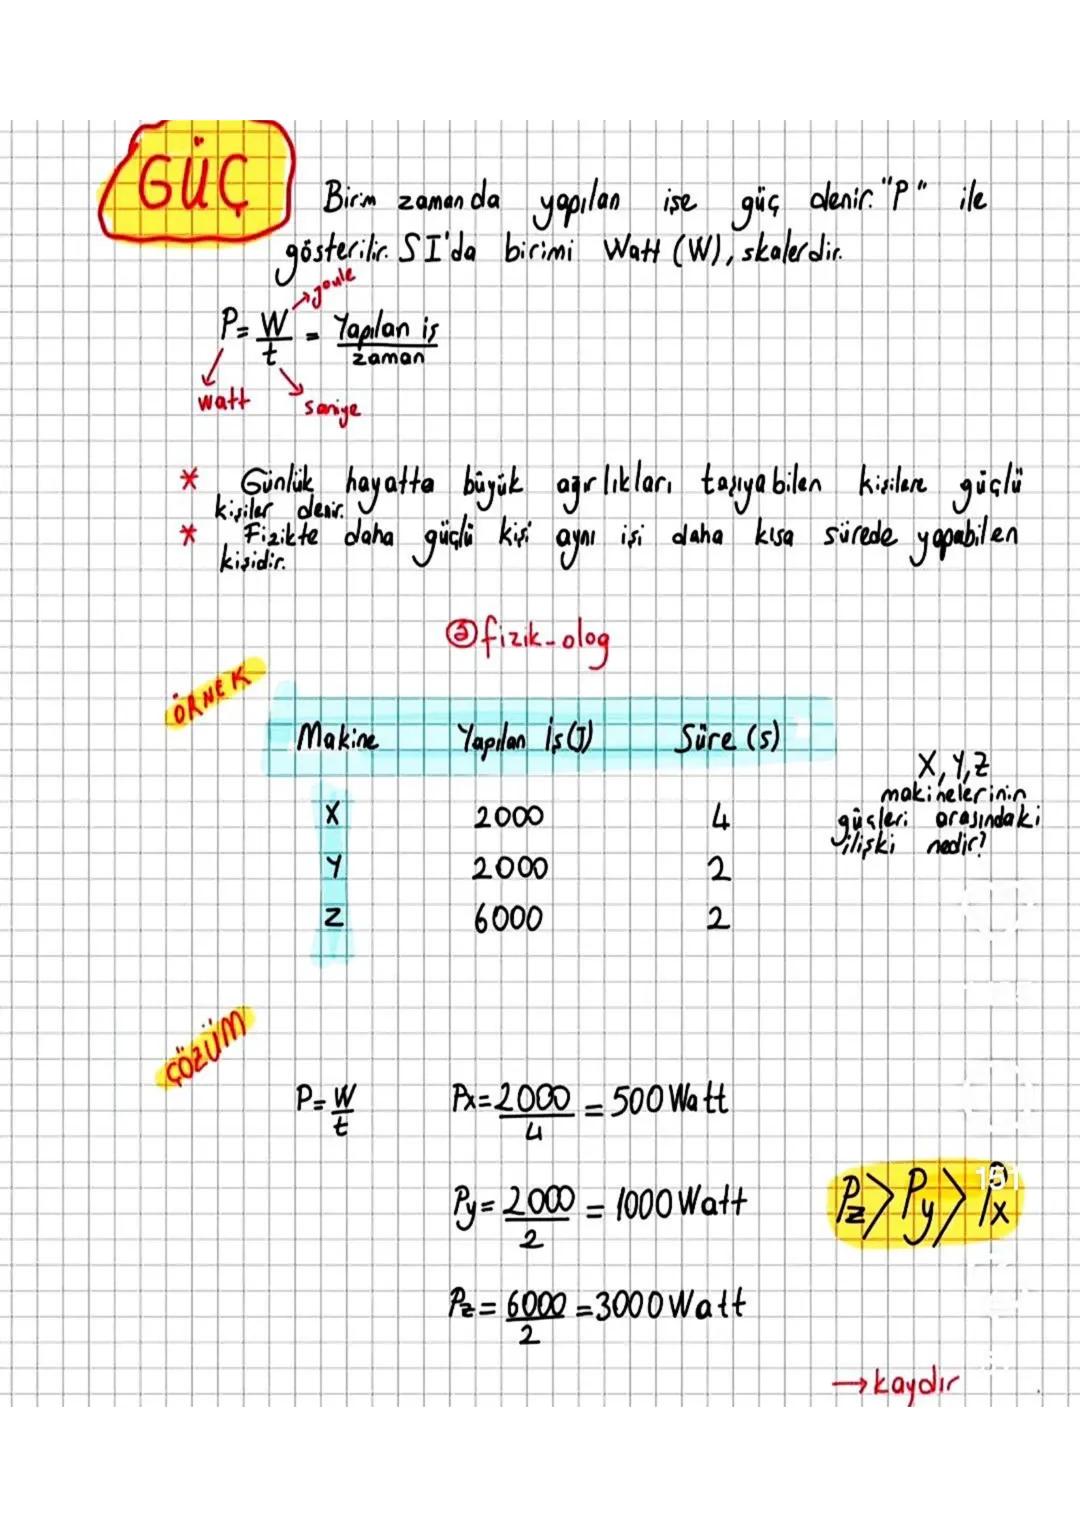 GÜÇ
Birim zamanda yapılan işe güç denir. "P" ile
gösterilir. SI'da birimi Watt (W), skalerdir.
P= W/t = Yapılan iş/zaman
joule
watt
saniye
* Günlük hayatta büyük ağırlıkları taşıyabilen kişilere güçlü
kişiler denir.
* Fizikte daha güçlü kişi aynı işi daha kısa sürede yapabilen
kişidir.
@fizik_olog
ÖRNEK
Makine Yapılan İş(J) Süre (s)
X 2000 4
Y 2000 2
Z 6000 2
X, Y, Z
makinelerinin
güçleri arasındaki
ilişki nedir?
ÇÖZÜM
P= W/t
Px= 2000/4 = 500 Watt
Py= 2000/2 = 1000 Watt
Pz= 6000/2 = 3000 Watt
Pz > Py > Px
151
→ kaydır